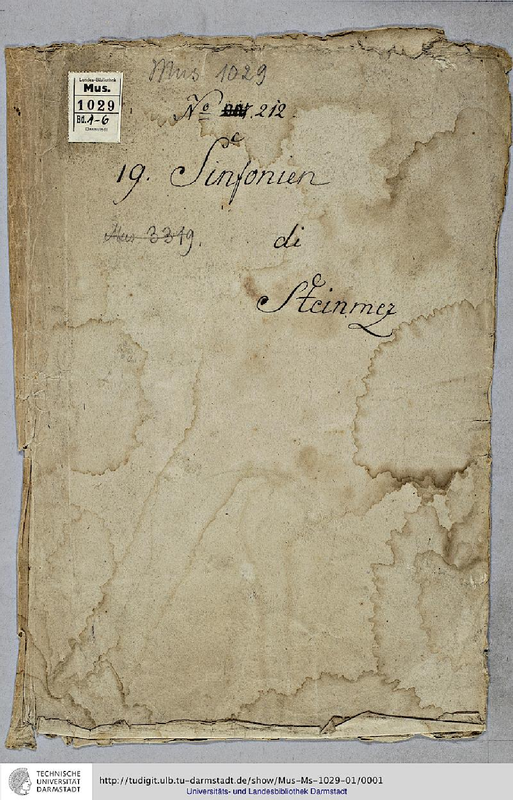 Mus 1029
Landes-Bibliothek
Mus.
1029
Bd. 1-6
(Darmstadt)
No 212.
19. Sinfonien
Mus 3319.
di
Steinmez
TECHNISCHE
UNIVERSITÄT
DARMSTADT
http://tudigit.ulb.tu-darmstadt.de/show/Mus-Ms-1029-01/0001
Universitäts- und Landesbibliothek Darmstadt